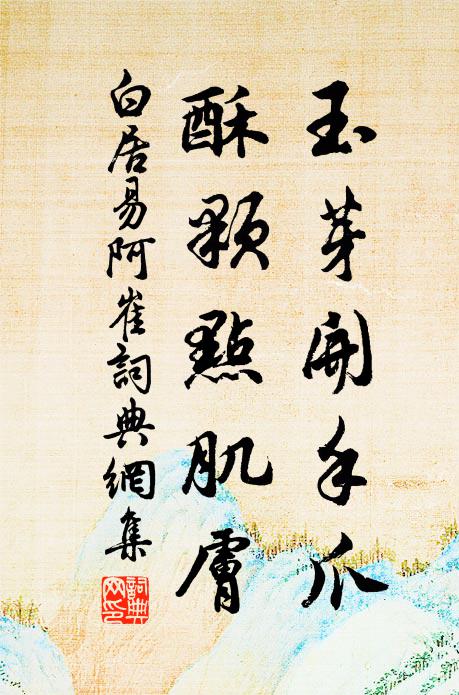 玉芽開手爪
酥顆點肌膚
白居易阿崔詞典網集
詞典網印